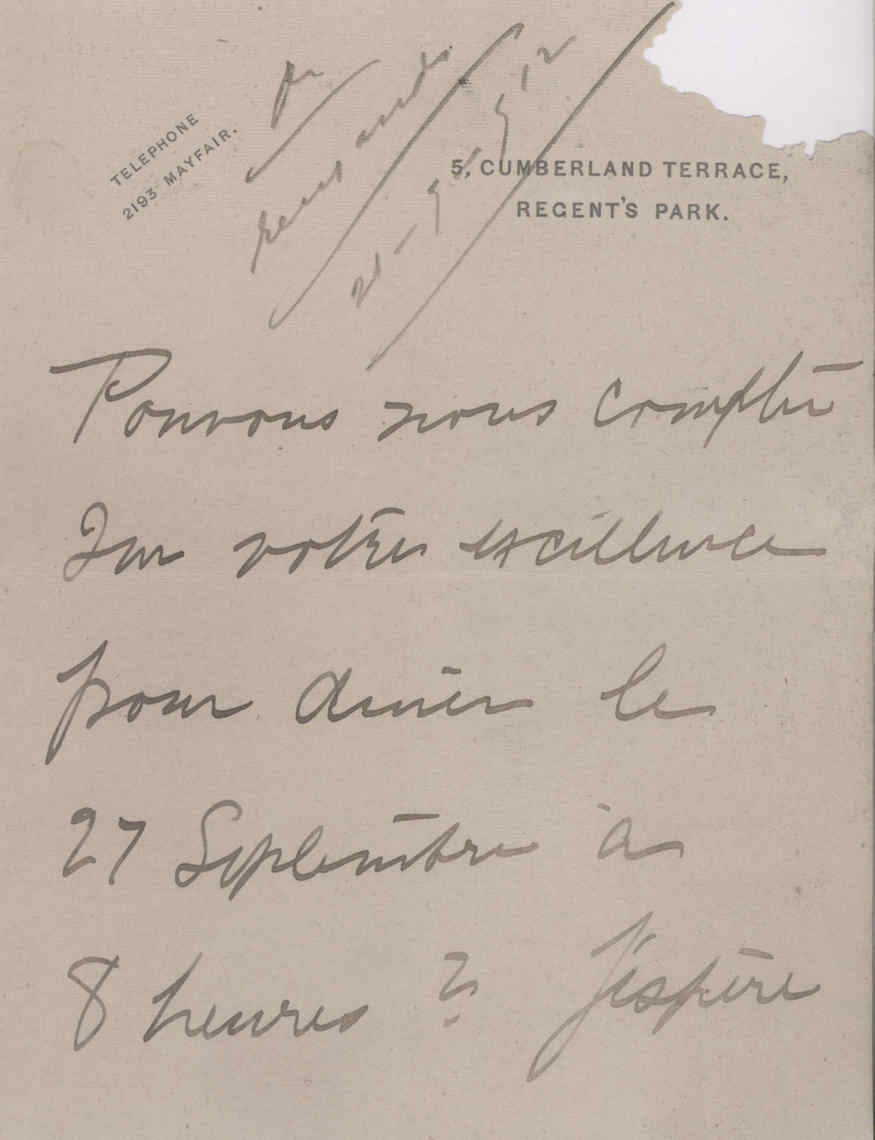 TELEPHONE
2193 MAYFAIR.
5, CUMBERLAND TERRACE,
REGENT'S PARK.
21-9-912
Pouvons nous compter
Sur votre excellence
pour diner le
27 Septembre à
8 heures ? J'espère